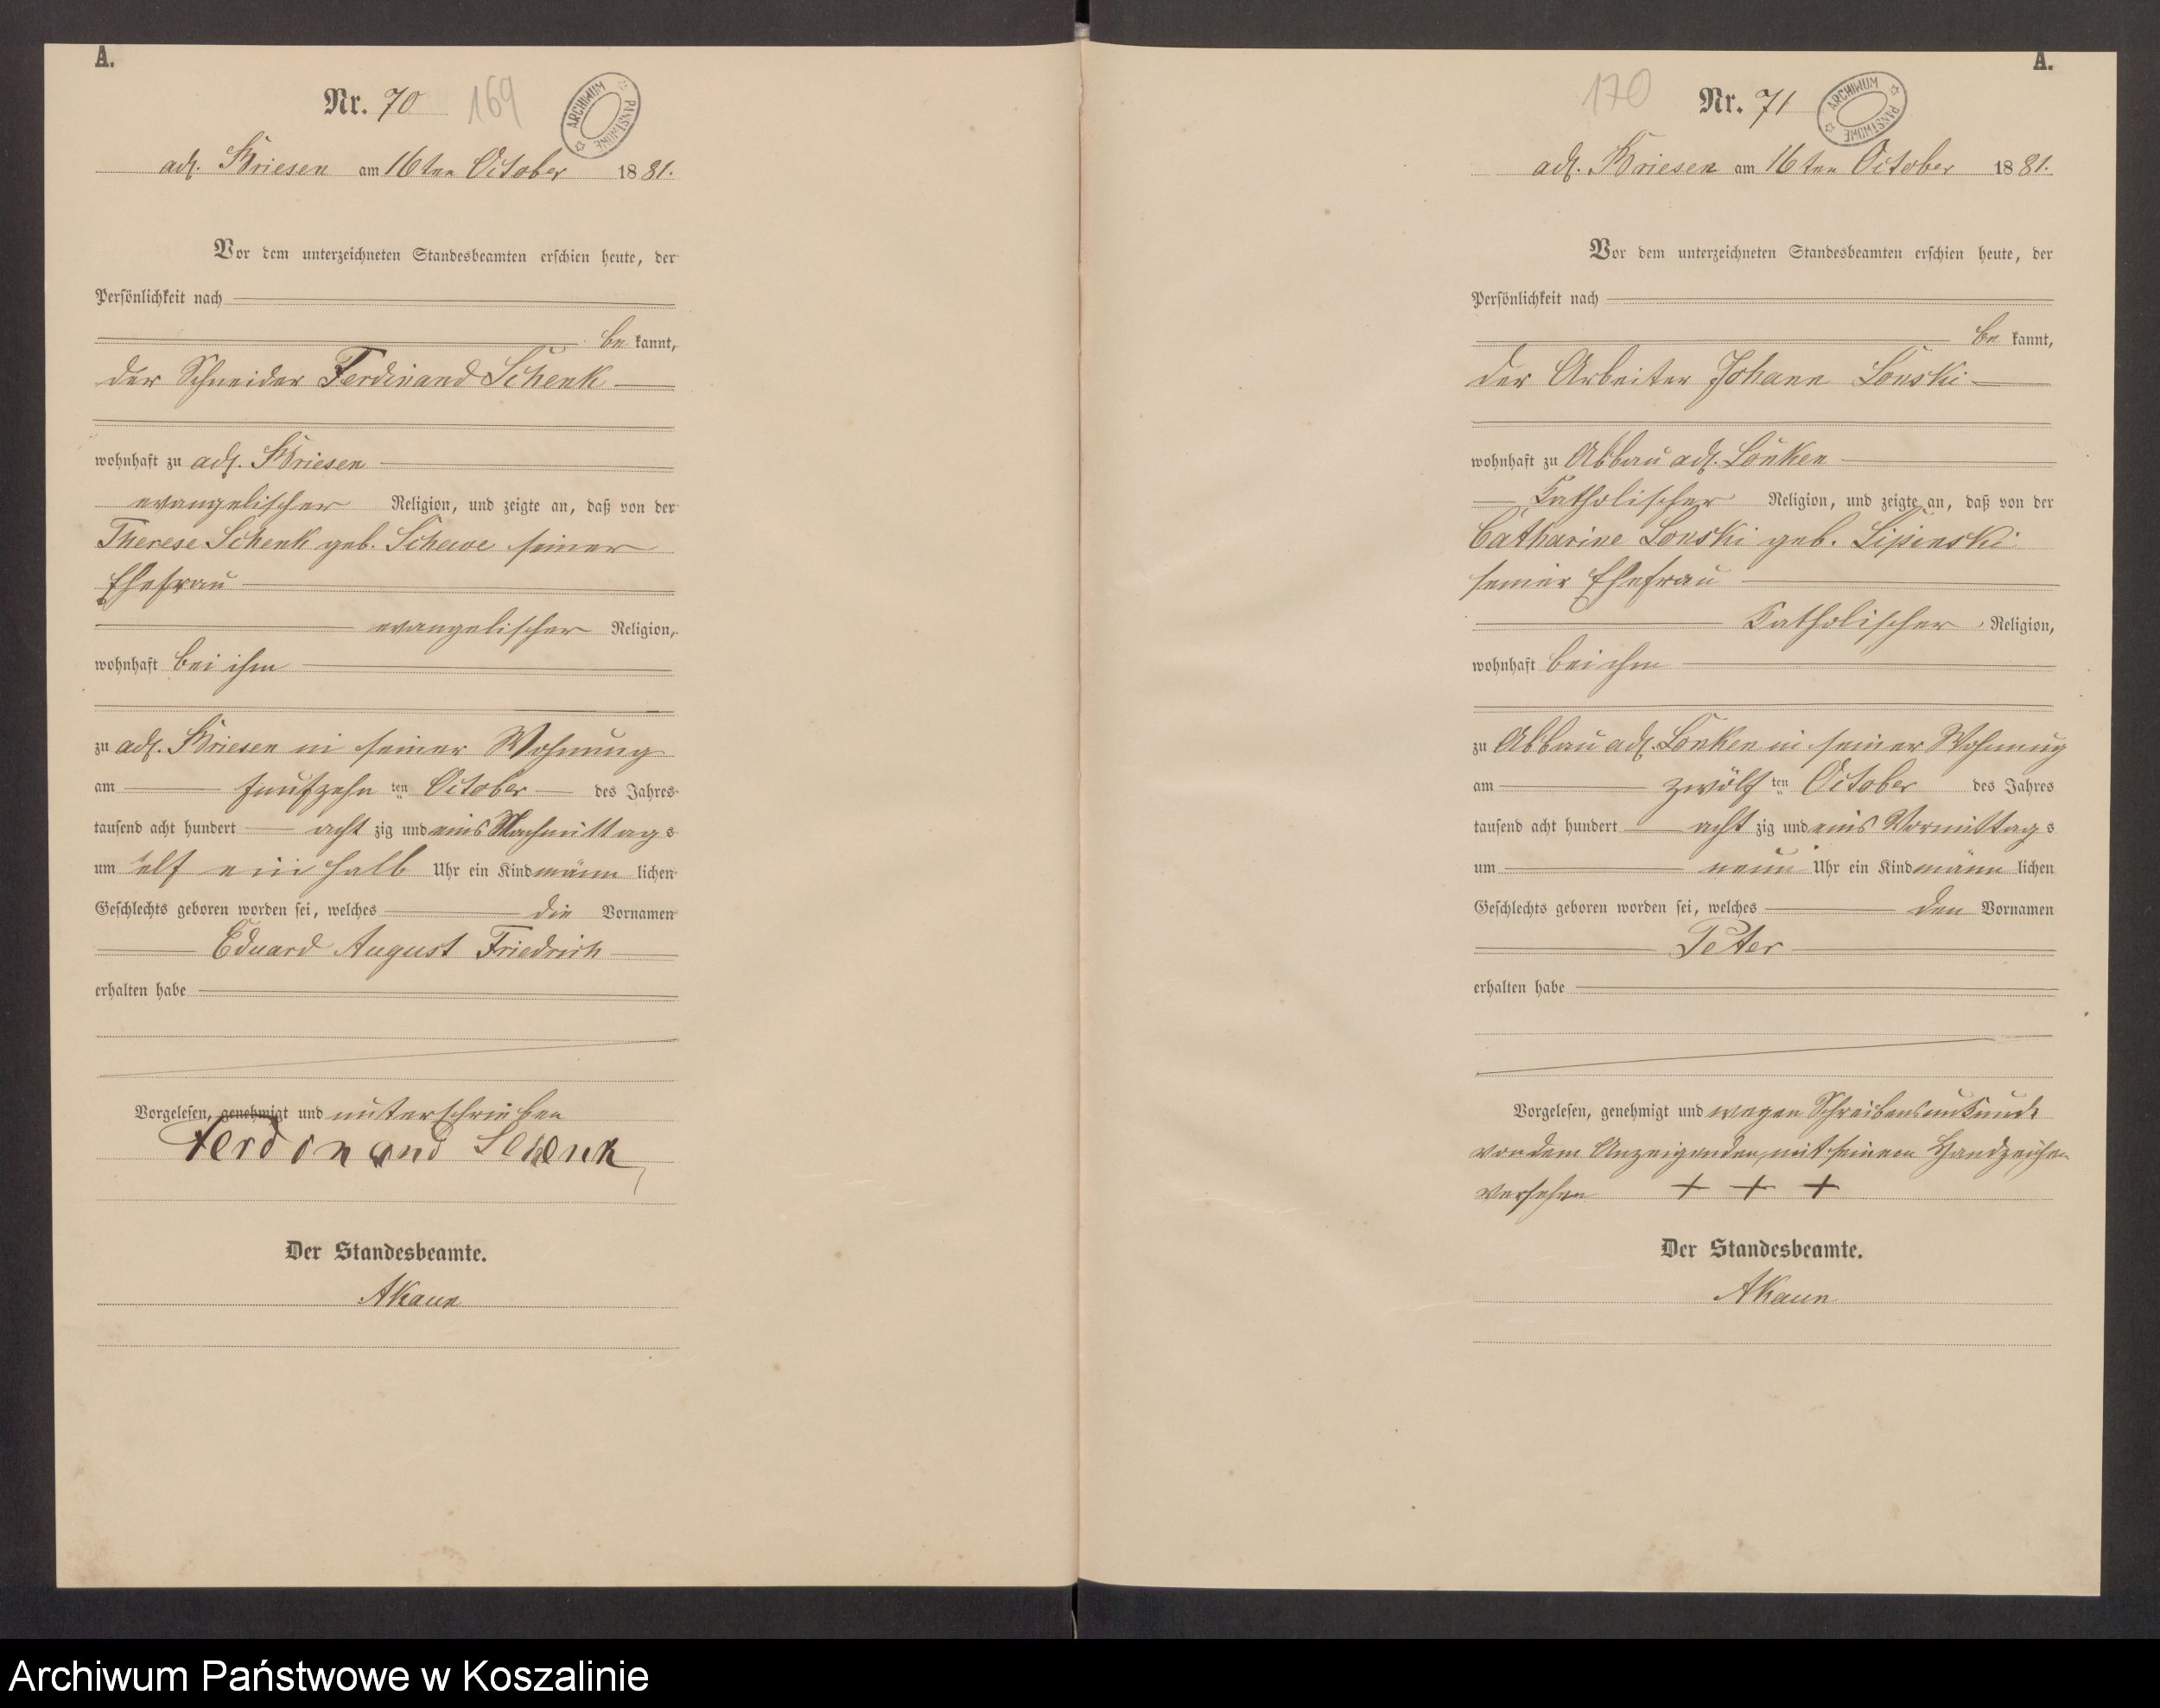 A.
Nr. 70 169
ARCHIWUM PAŃSTWOWE
adl. Briesen am 16ten October 1881.
Vor dem unterzeichneten Standesbeamten erschien heute, der
Persönlichkeit nach
be kannt,
der Schneider Ferdinand Schenk
wohnhaft zu adl. Briesen
evangelischer Religion, und zeigte an, daß von der
Therese Schenk geb. Schewe seiner
Ehefrau
evangelischer Religion,
wohnhaft bei ihm
zu adl. Briesen in seiner Wohnung
am fünfzehn ten October des Jahres
tausend acht hundert acht zig und eins Nachmittags
um elf ein halb Uhr ein Kind männ lichen
Geschlechts geboren worden sei, welches die Vornamen
Eduard August Friedrich
erhalten habe
Vorgelesen, genehmigt und unterschrieben
Ferdinand Schenk
Der Standesbeamte.
AKaun
A.
170 Nr. 71
ARCHIWUM PAŃSTWOWE
adl. Briesen am 16ten October 1881.
Vor dem unterzeichneten Standesbeamten erschien heute, der
Persönlichkeit nach
be kannt,
der Arbeiter Johann Lonski
wohnhaft zu Abbau adl. Lonken
Katholischer Religion, und zeigte an, daß von der
Catharine Lonski geb. Lipinski
seiner Ehefrau
Katholischer Religion,
wohnhaft bei ihm
zu Abbau adl. Lonken in seiner Wohnung
am zwölf ten October des Jahres
tausend acht hundert acht zig und eins Vormittags
um neun Uhr ein Kind männ lichen
Geschlechts geboren worden sei, welches den Vornamen
Peter
erhalten habe
Vorgelesen, genehmigt und wegen Schreibensunkunde
von dem Anzeigenden mit seinem Handzeichen
versehen + + +
Der Standesbeamte.
AKaun
Archiwum Państwowe w Koszalinie